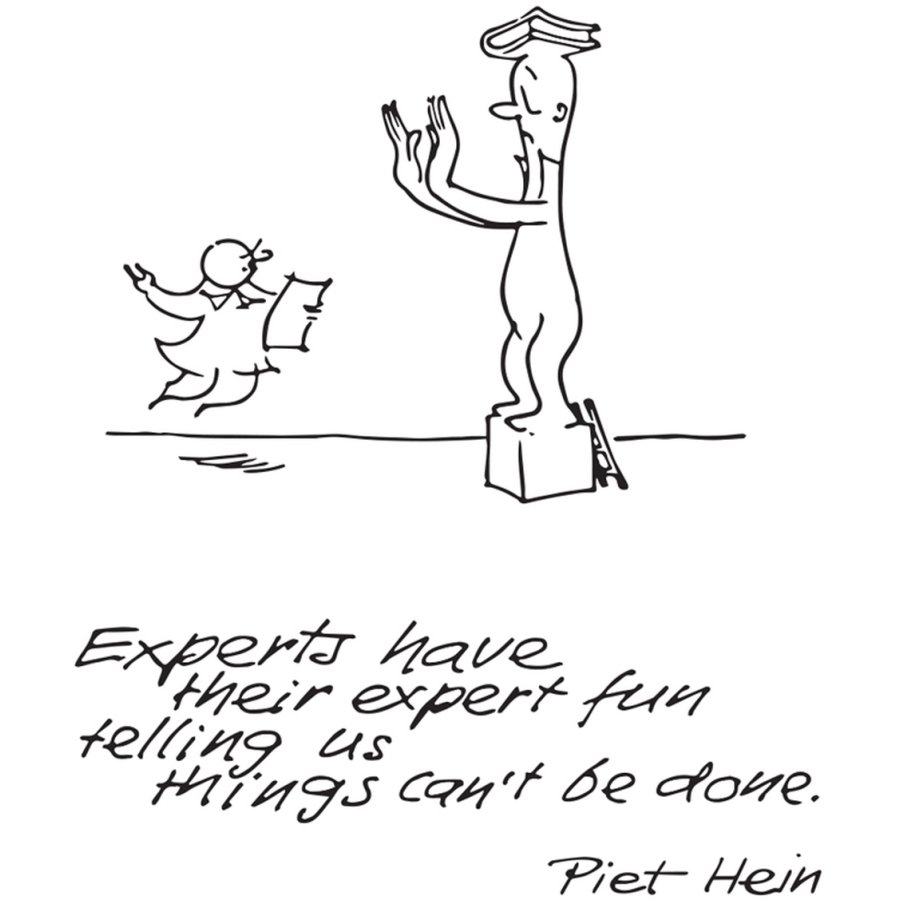 Experts have
their expert fun
telling us
things can't be done.
Piet Hein